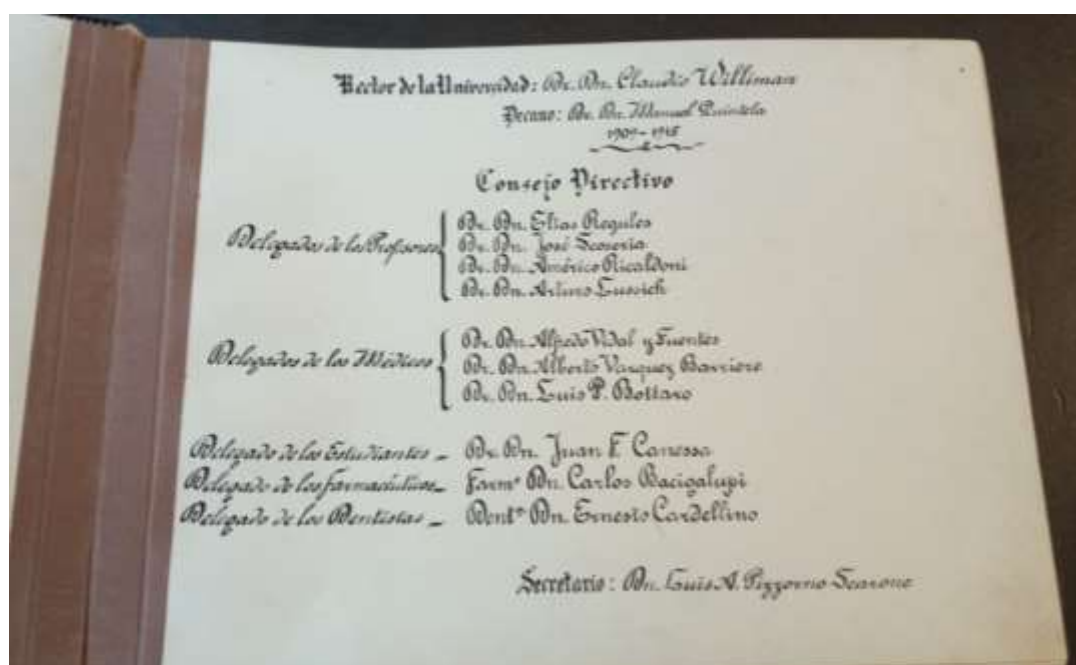 Rector de la Universidad: Dr. Dn. Claudio Williman
Decano: Dr. Dn. Manuel Quintela
1909-1915
Consejo Directivo
Delegados de los Profesores
Dr. Dn. Elías Regules
Dr. Dn. José Scosería
Dr. Dn. Américo Ricaldoni
Dr. Dn. Arturo Lussich
Delegados de los Médicos
Dr. Dn. Alfredo Vidal y Fuentes
Dr. Dn. Alberto Vazquez Barriere
Dr. Dn. Luis P. Bottaro
Delegado de los Estudiantes - Dr. Dn. Juan F. Canessa
Delegado de los farmacéuticos - Farmº Dn. Carlos Bacigalupi
Delegado de los Dentistas - Dentº Dn. Ernesto Cardellino
Secretario: Dn. Luis A. Pizzorno Scarone